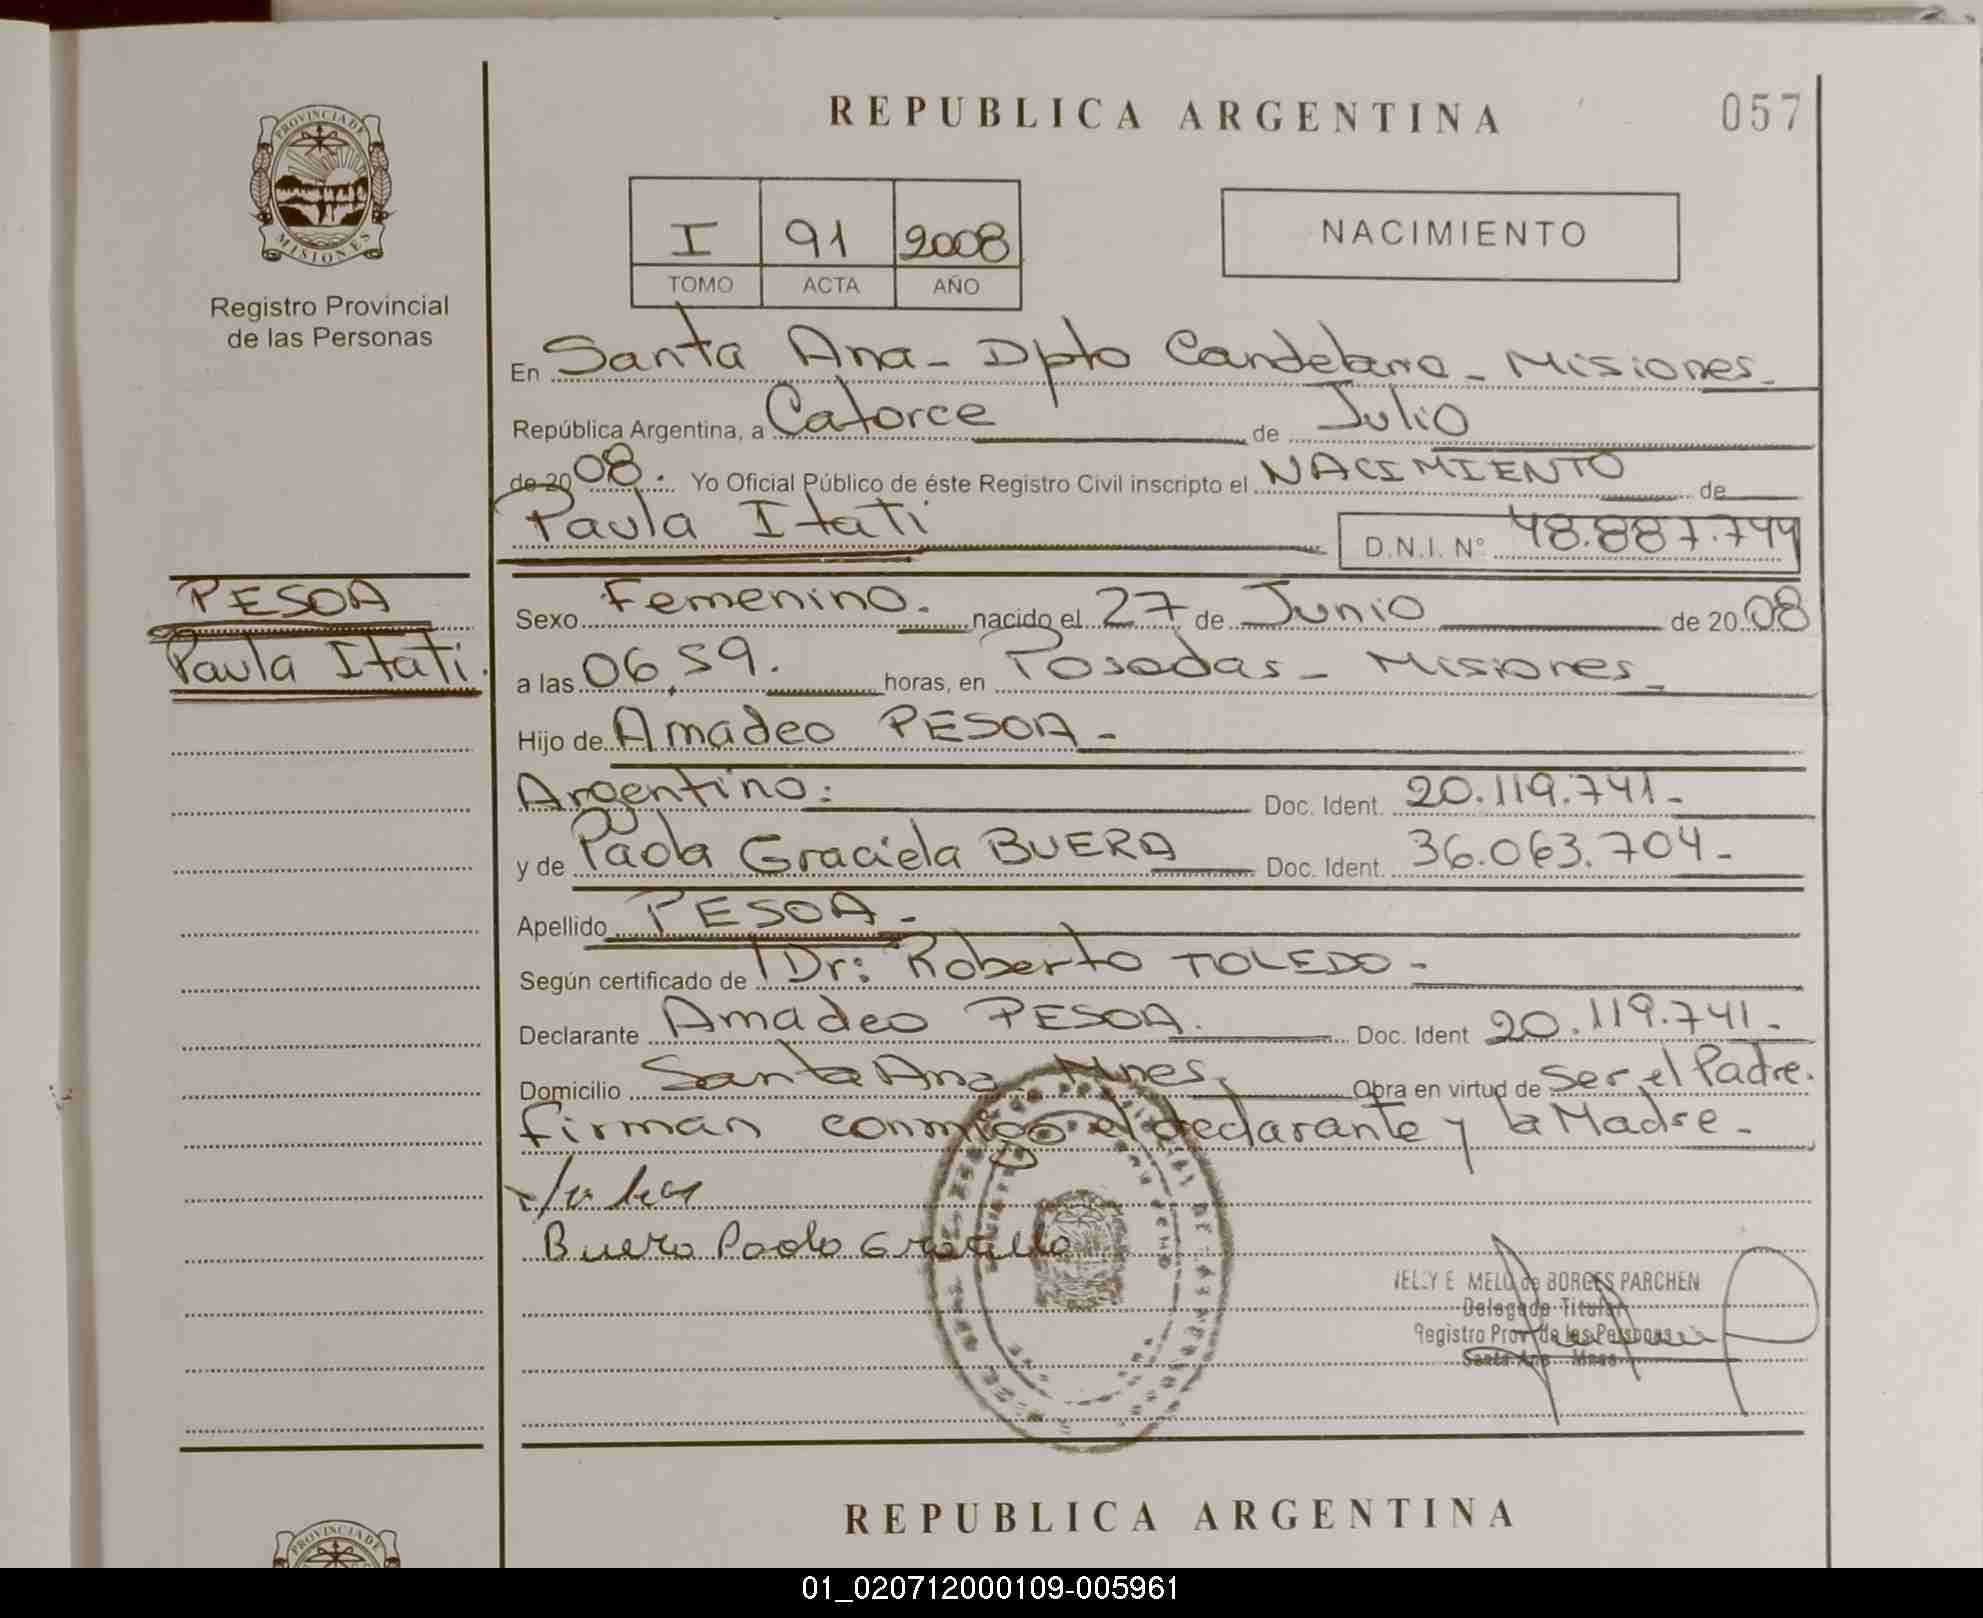 PROVINCIA DE
MISIONES
Registro Provincial
de las Personas
REPUBLICA ARGENTINA
057
I 91 2008
TOMO ACTA AÑO
NACIMIENTO
En Santa Ana - Dpto Candelaria - Misiones -
República Argentina, a Catorce de Julio
de 2008. Yo Oficial Público de éste Registro Civil inscripto el NACIMIENTO de
Paula Itati
D.N.I. Nº 48.887.744
PESOA
Paula Itati.
Sexo Femenino. nacido el 27 de Junio de 2008
a las 06,59. horas, en Posadas - Misiones -
Hijo de Amadeo PESOA -
Argentino: Doc. Ident. 20.119.741 -
y de Paola Graciela BUERA Doc. Ident. 36.063.704 -
Apellido PESOA -
Según certificado de Dr: Roberto TOLEDO -
Declarante Amadeo PESOA. Doc. Ident 20.119.741 -
Domicilio Santa Ana Mnes, Obra en virtud de Ser el Padre.
firman conmigo el declarante y la Madre -
Buera Paola Graciela
NELLY E. MELO de BORGES PARCHEN
Delegada Titular
Registro Prov. de las Personas
Santa Ana - Mnes
REPUBLICA ARGENTINA
PROVINCIA DE
01_020712000109-005961